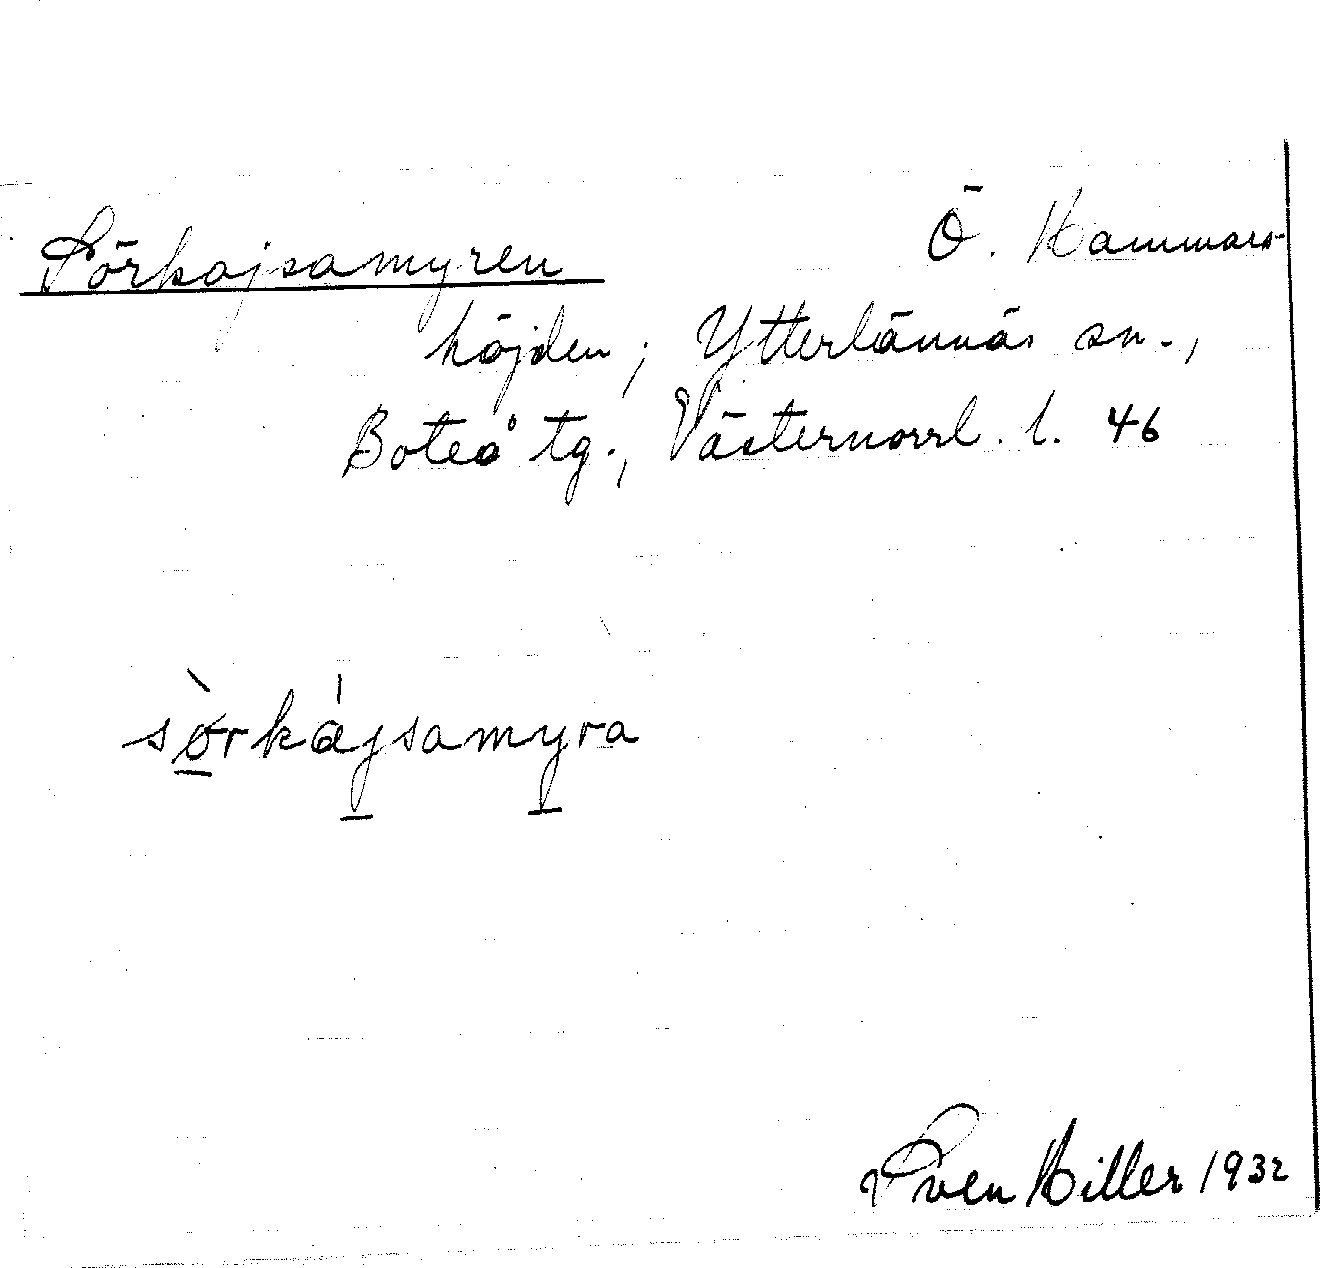 Sörkajsamyren Ö. Hammars-
höjden; Ytterlännäs sn.,
Boteå tg., Västernorrl. l. 46
sørkajsamyra
Sven Hiller 1932